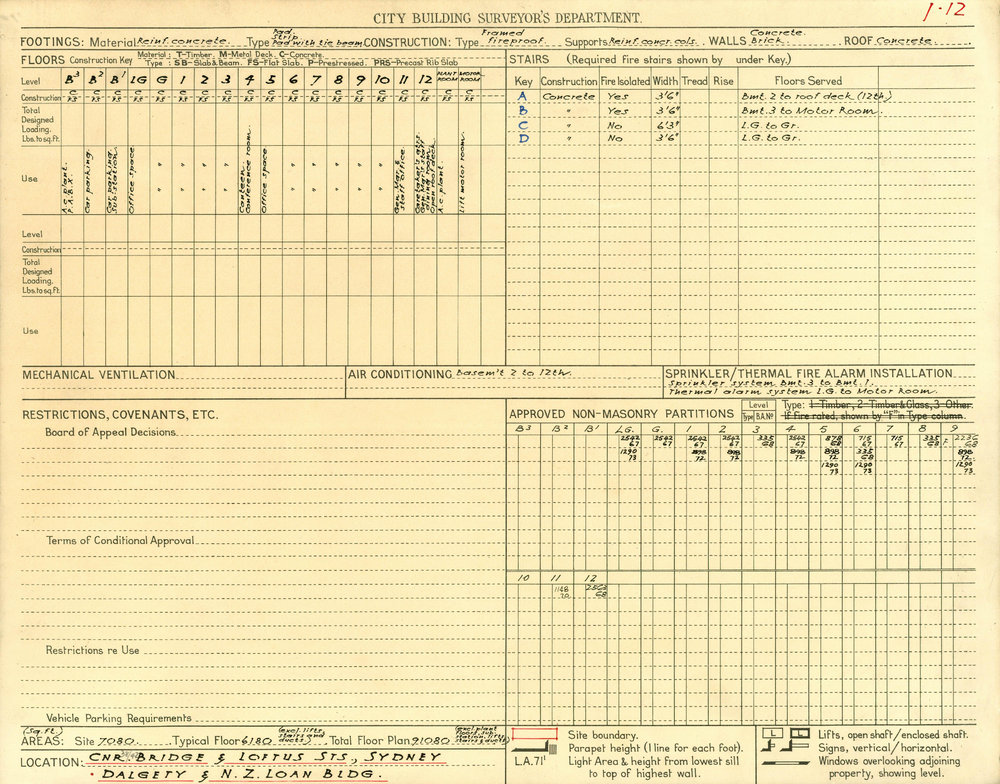 CITY BUILDING SURVEYOR'S DEPARTMENT.
1·12
FOOTINGS: Material Reinf. concrete. Type Pad Strip Pad with tie beam CONSTRUCTION: Type Framed fireproof. Supports Reinf. concr. cols. WALLS Concrete. Brick. ROOF Concrete.
FLOORS Construction Key Material : T-Timber. M-Metal Deck. C-Concrete.
Type : SB-Slab&Beam. FS-Flat Slab. P-Prestressed. PRS-Precast Rib Slab
Level B3 B2 B1 LG G 1 2 3 4 5 6 7 8 9 10 11 12 PLANT ROOM MOTOR ROOM
Construction C FS C FS C FS C FS C FS C FS C FS C FS C FS C FS C FS C FS C FS C FS C FS C FS C FS C FS C FS
Total Designed Loading. Lbs. to sq. ft.
Use
A.c. plant. P.A.B.X.
Car parking.
Car parking. Sub. station.
Office space.
" " " "
Canteen. Conference room.
Office space.
" " " " "
Gen. Mgr. & staff office.
Caretaker's qtrs. Gen. Mgr's staff dining room. Open roof deck.
A.c. plant.
Lift motor room.
Level
Construction
Total Designed Loading. Lbs. to sq. ft.
Use
STAIRS (Required fire stairs shown by under Key.)
Key Construction Fire Isolated Width Tread Rise Floors Served
A Concrete Yes 3'6" Bmt. 2 to roof deck (12th)
B " Yes 3'6" Bmt. 3 to Motor Room.
C " No 6'3" L.G. to Gr.
D " No 3'6" L.G. to Gr.
MECHANICAL VENTILATION
AIR CONDITIONING Basem't 2 to 12th.
SPRINKLER/THERMAL FIRE ALARM INSTALLATION
Sprinkler system Bmt. 3 to Bmt. 1.
Thermal alarm system L.G. to Motor Room.
RESTRICTIONS, COVENANTS, ETC.
Board of Appeal Decisions
Terms of Conditional Approval
Restrictions re Use
Vehicle Parking Requirements
APPROVED NON-MASONRY PARTITIONS Level Type B.A.No Type: 1-Timber, 2-Timber&Glass, 3-Other.
If fire rated, shown by "F" in Type column.
B3 B2 B1 LG. G. 1 2 3 4 5 6 7 8 9
2542 67 2542 67 2542 67 2542 67 335 68 2542 67 878 68 715 67 715 67 335 68 F 2236 68
1290 73 898 72 898 72 898 72 898 72 335 68 898 72
1290 73 1290 73 1290 73
10 11 12
1148 70 2563 68
AREAS: (Sq. ft.) Site 7080 Typical Floor 6180 (excl. lifts, stairs and ducts) Total Floor Plan 91080 (excl. plant floors, sub. station, lifts, stairs & ducts)
LOCATION: CNR. BRIDGE & LOFTUS STS, SYDNEY
· DALGETY & N.Z. LOAN BLDG.
Site boundary.
Parapet height (1 line for each foot).
L.A.71' Light Area & height from lowest sill to top of highest wall.
L Lifts, open shaft/enclosed shaft.
Signs, vertical/horizontal.
Windows overlooking adjoining property, showing level.